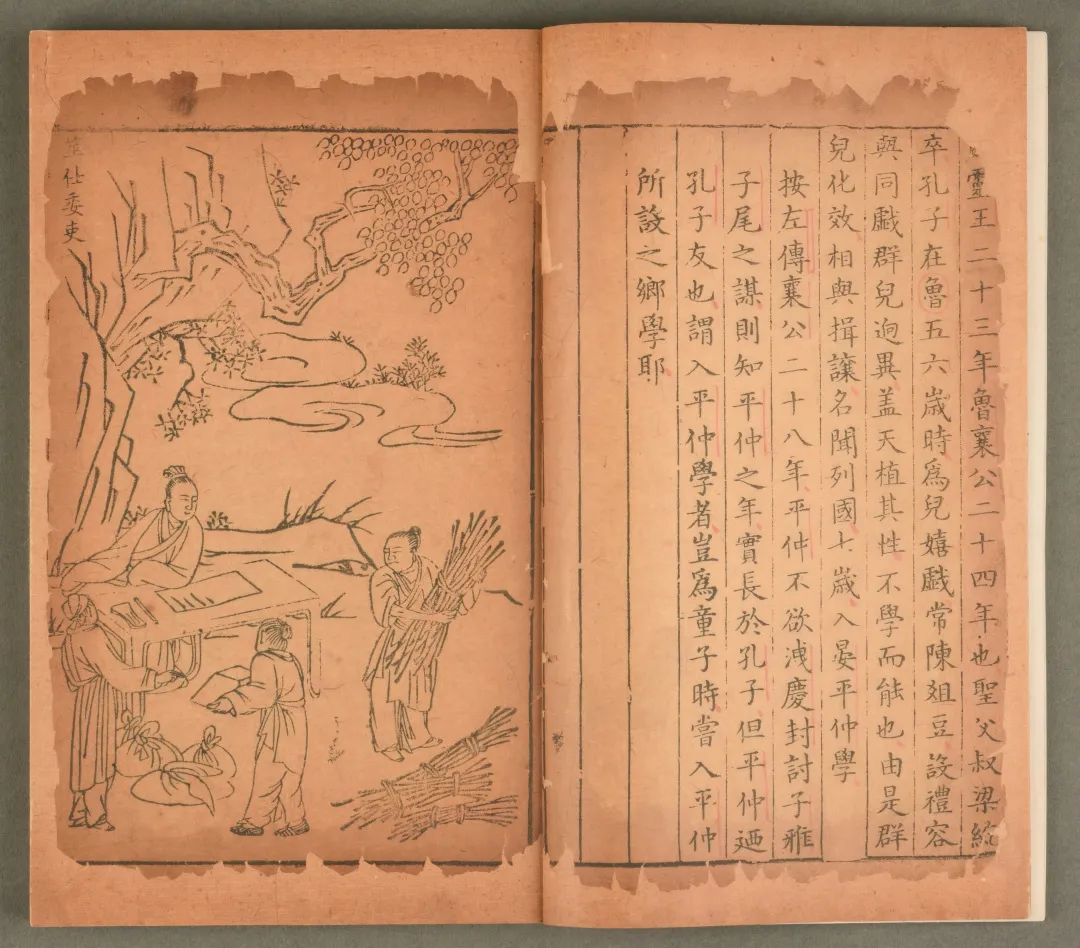 靈王二十三年魯襄公二十四年也聖父叔梁紇
卒孔子在魯五六歲時爲兒嬉戲常陳爼豆設禮容
與同戲群兒逈異盖天植其性不學而能也由是群
兒化效相與揖讓名聞列國七歲入晏平仲學
按左傳襄公二十八年平仲不欲洩慶封討子雅
子尾之謀則知平仲之年實長於孔子但平仲廼
孔子友也謂入平仲學者豈爲童子時嘗入平仲
所設之鄉學耶
筮仕委吏